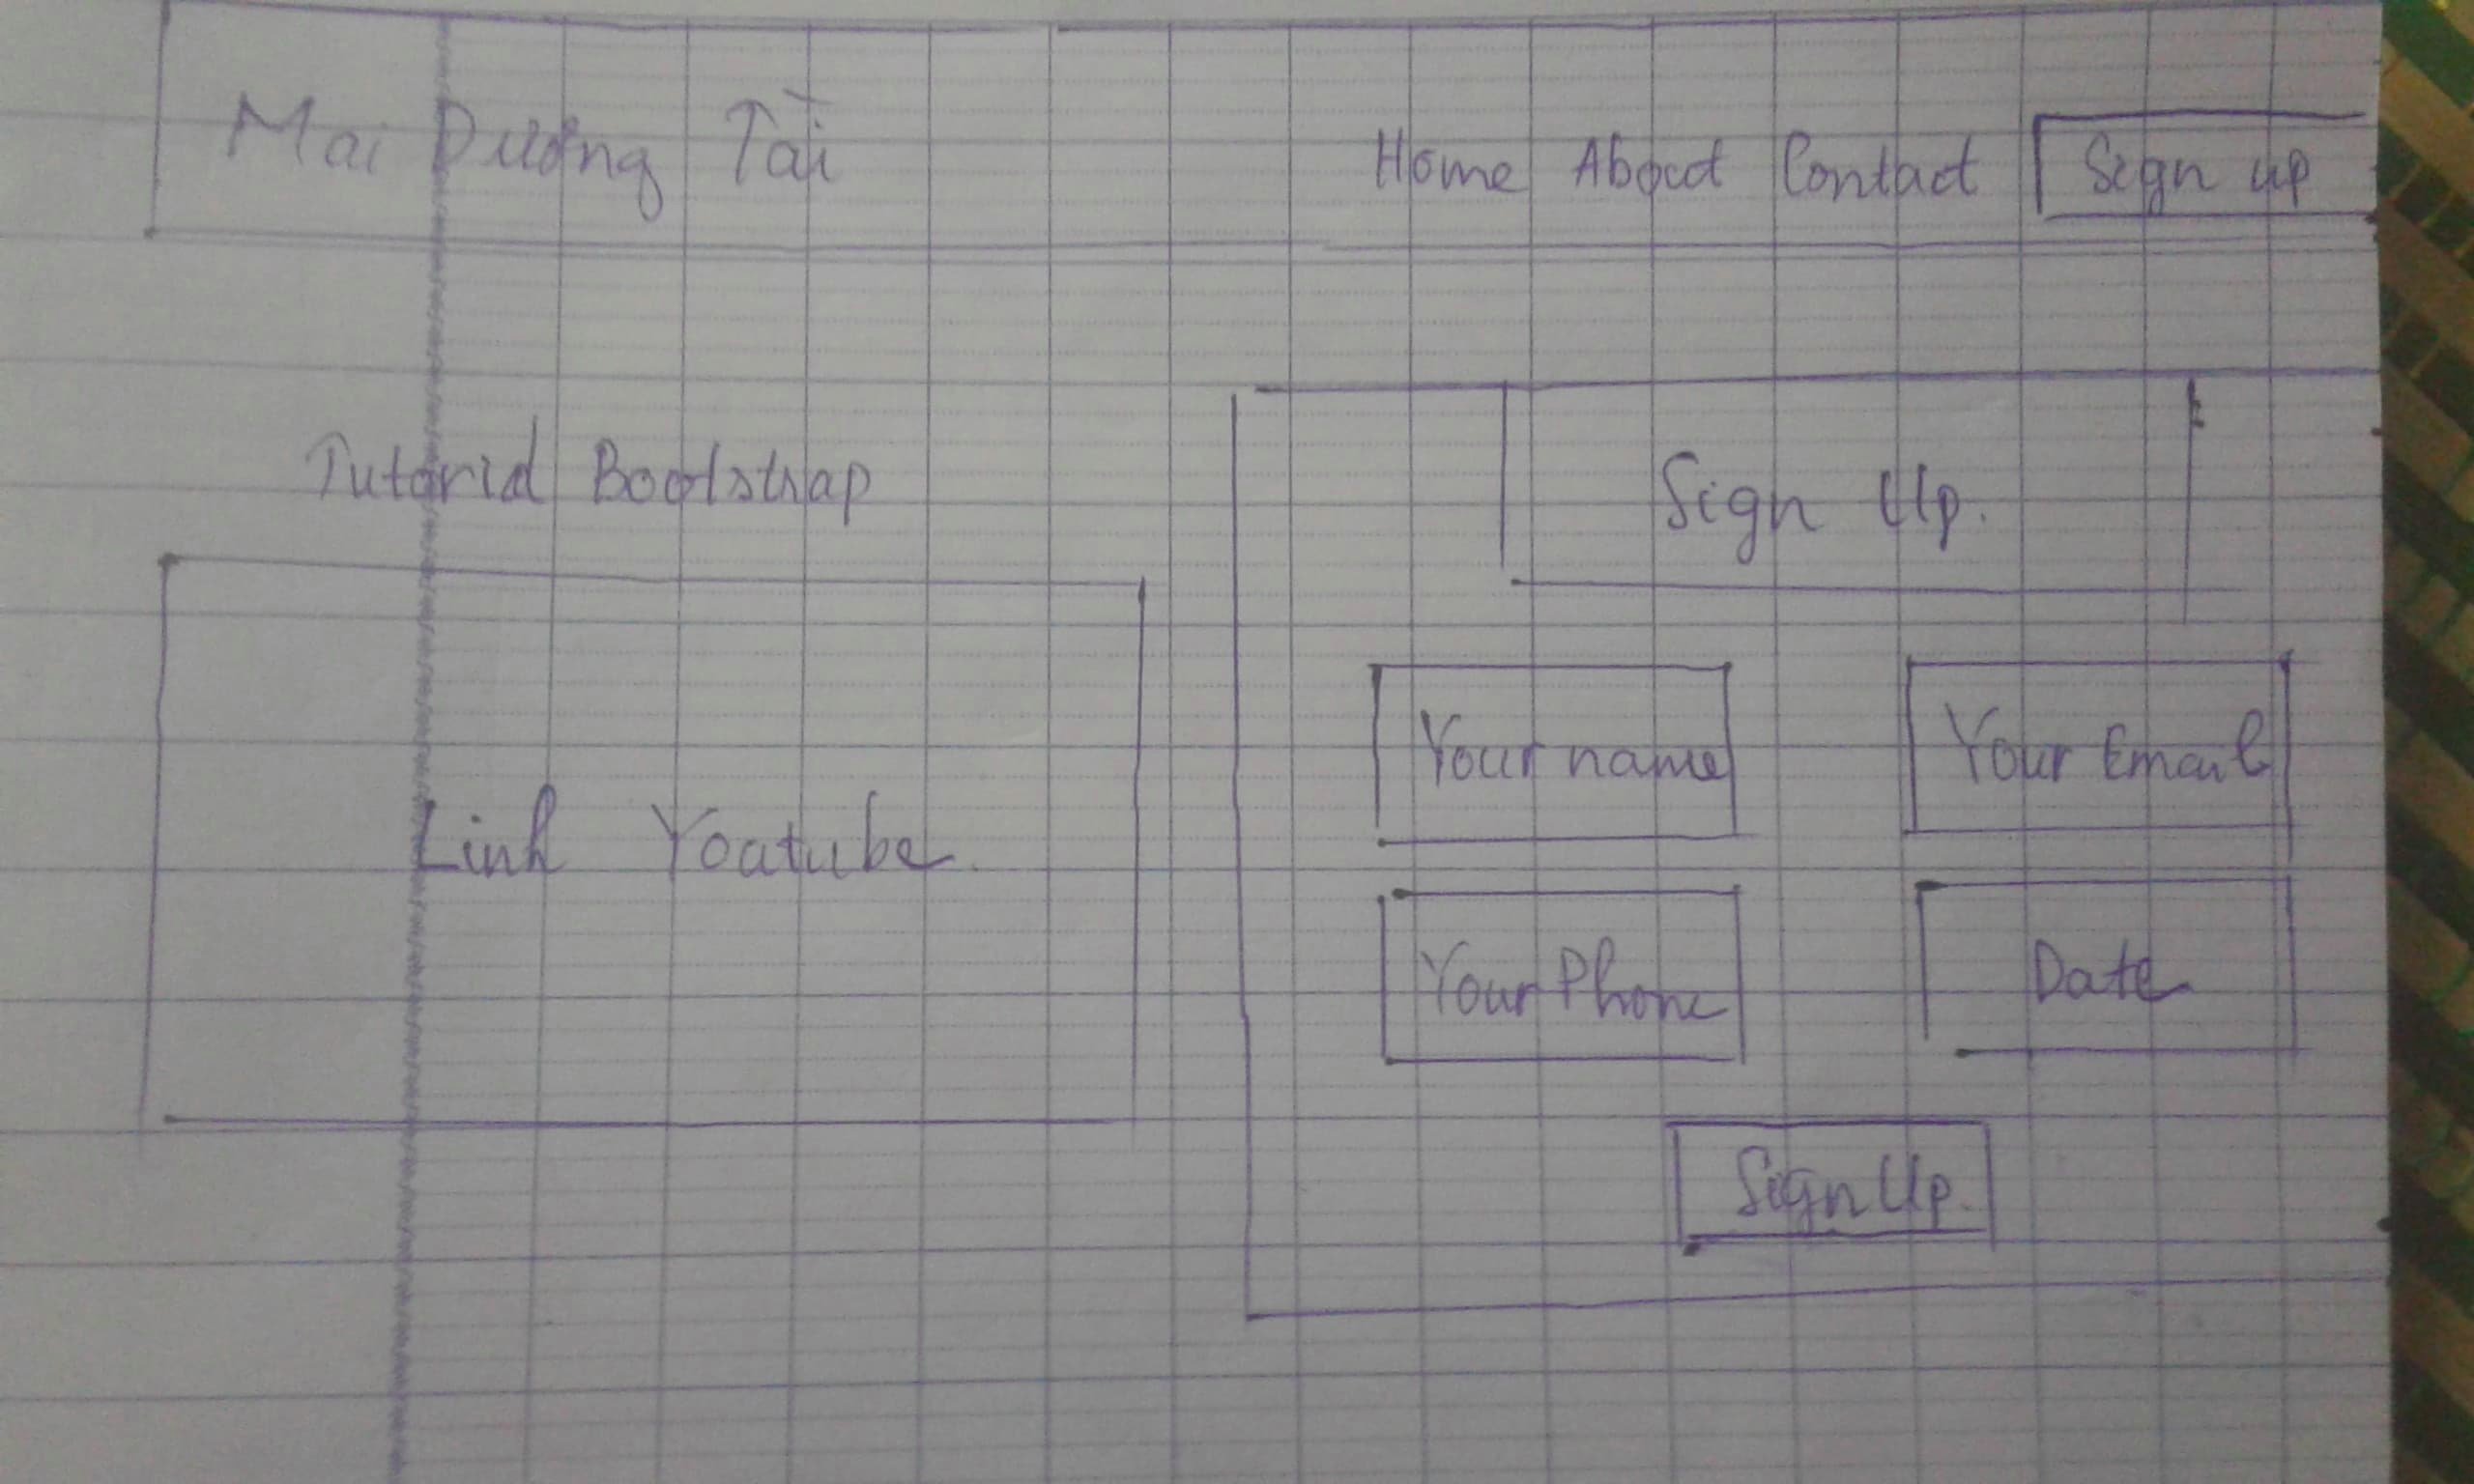 Mai Dương Tài
Home About Contact Sign up
Tutorial Bootstrap
Link Youtube.
Sign Up.
Your name
Your Email
Your Phone
Date
Sign Up.